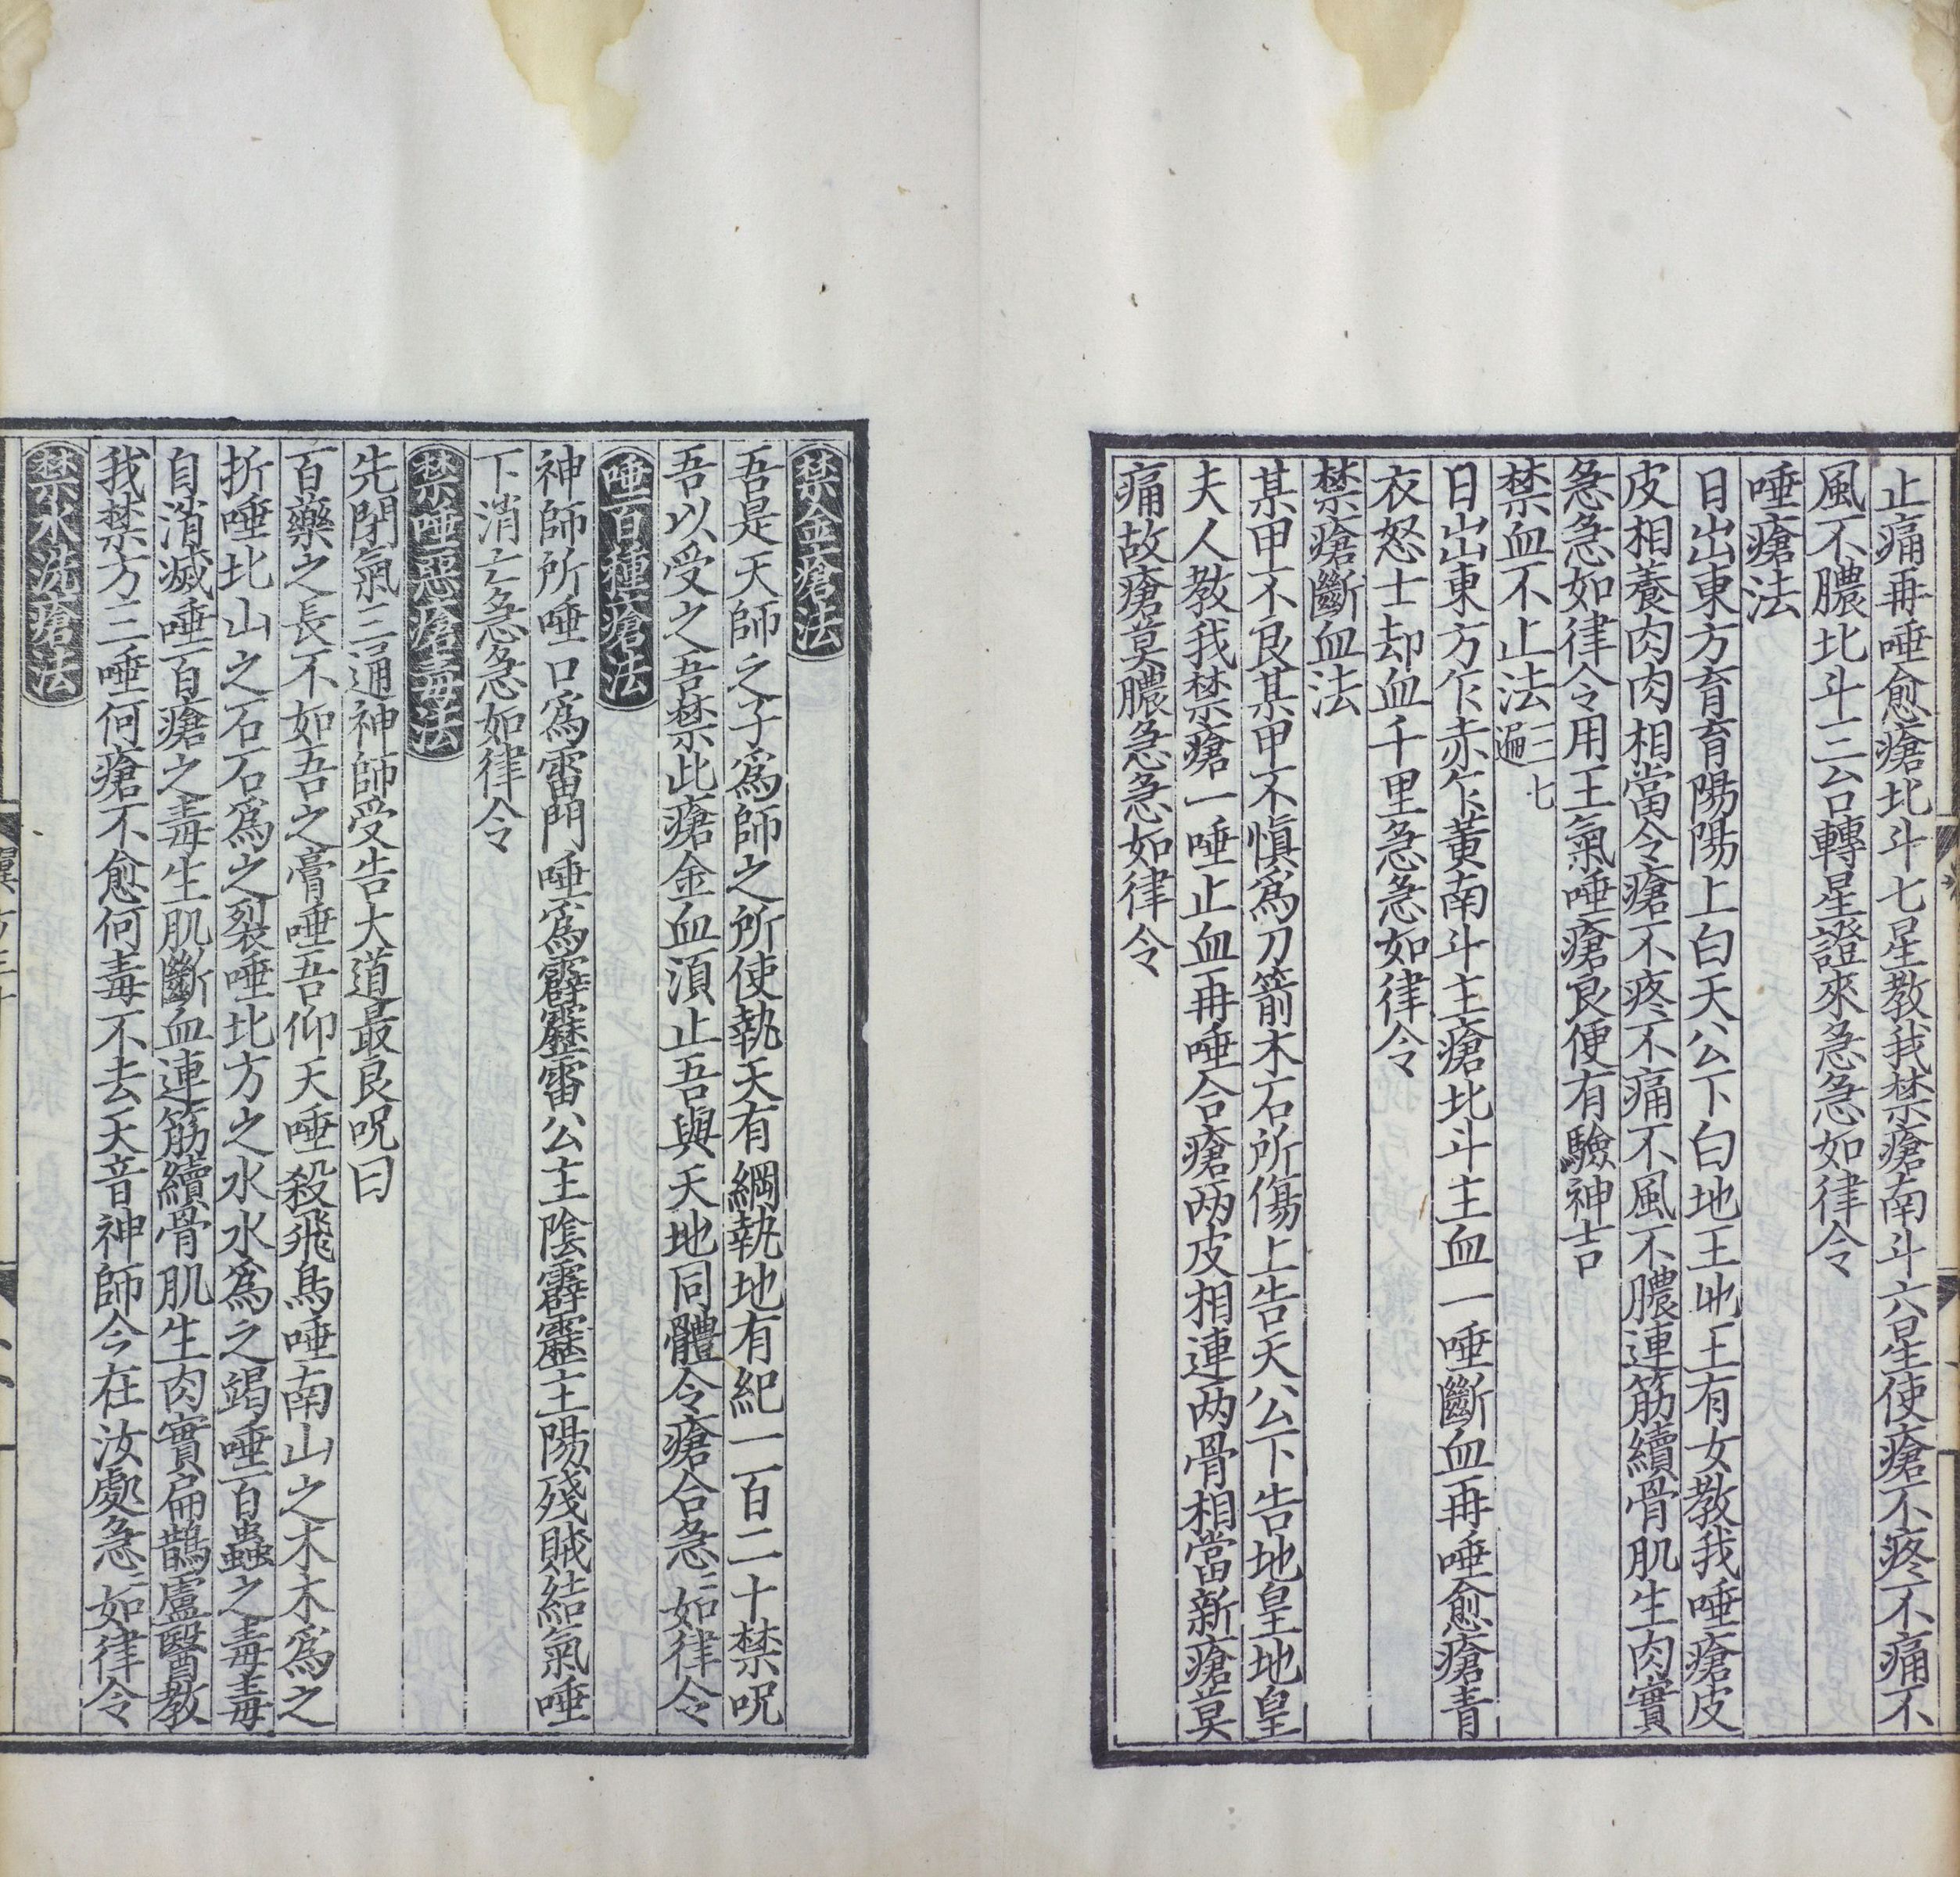 止痛再唾愈瘡北斗七星教我禁瘡南斗六星使瘡不疼不痛不
風不膿北斗三台轉星證來急急如律令
唾瘡法
日出東方育育陽陽上白天公下白地王地王有女教我唾瘡皮
皮相養肉肉相當令瘡不疼不痛不風不膿連筋續骨肌生肉實
急急如律令用王氣唾瘡良便有驗神吉
禁血不止法三七遍
日出東方乍赤乍黃南斗主瘡北斗主血一唾斷血再唾愈瘡青
衣怒士却血千里急急如律令
禁瘡斷血法
某甲不良某甲不慎爲刀箭木石所傷上告天公下告地皇地皇
夫人教我禁瘡一唾止血再唾合瘡两皮相連两骨相當新瘡莫
痛故瘡莫膿急急如律令
禁金瘡法
吾是天師之子爲師之所使執天有綱執地有紀一百二十禁呪
吾以受之吾禁此瘡金血須止吾與天地同體令瘡合急〻如律令
唾百種瘡法
神師所唾口爲雷門唾爲霹靂雷公主陰霹靂主陽殘賊結氣唾
下消亡急急如律令
禁唾惡瘡毒法
先閉氣三通神師受告大道最良呪曰
百藥之長不如吾之膏唾吾仰天唾殺飛鳥唾南山之木木爲之
折唾北山之石石爲之裂唾北方之水水爲之竭唾百蟲之毒毒
自消滅唾百瘡之毒生肌斷血連筋續骨肌生肉實扁鵲盧醫教
我禁方三唾何瘡不愈何毒不去天音神師今在汝處急〻如律令
禁水洗瘡法